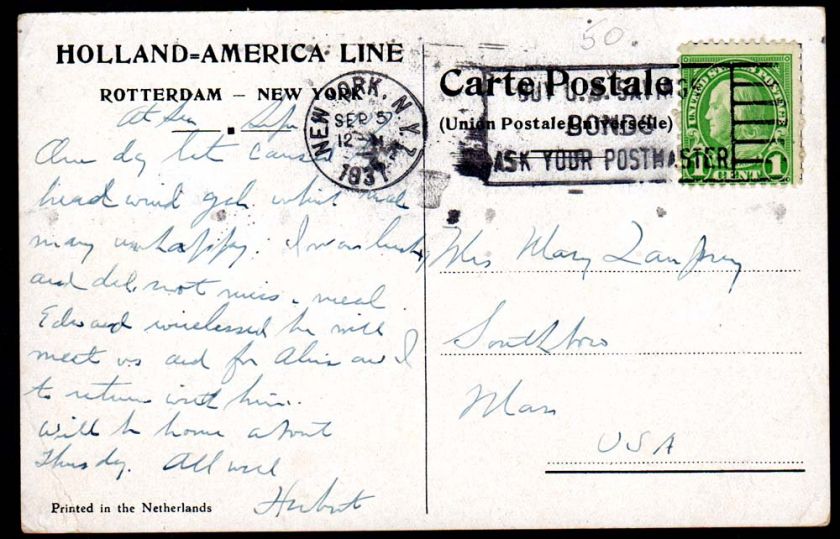 HOLLAND=AMERICA LINE
ROTTERDAM — NEW YORK
At Sea
One day late
head wind
many unhappy. I was lucky
and did not miss a meal.
Edward wirelessed he will
meet us and for and I
to return with him.
Will be home about
Thursday. All well
Herbert
Printed in the Netherlands
NEW YORK, N.Y.
SEP 5
12 M
1937
50.
Carte Postale
(Union Postale Universelle)
BUY U.S. SAVINGS
BONDS
ASK YOUR POSTMASTER
UNITED STATES POSTAGE
1 CENT 1
Mrs Mary
Southboro
Mass
USA